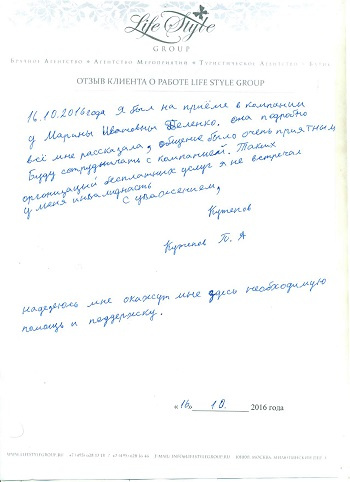 Life Style
GROUP
Брачное Агентство • Агентство Мероприятий • Туристическое Агентство •
ОТЗЫВ КЛИЕНТА О РАБОТЕ LIFE STYLE GROUP
16.10.2016 года я был на приёме в компании
у Марины Ивановны Беленко. она подробно
всё мне рассказала, общение было очень приятным
Буду сотрудничать с компанией. Таких
организаций бесплатных услуг я не встречал
у меня инвалидность
с уважением,
Кутепов
Кутепов П. А
надеюсь мне окажут мне здесь необходимую
помощь и поддержку.
«16» 10. 2016 года
WWW.LIFESTYLEGROUP.RU